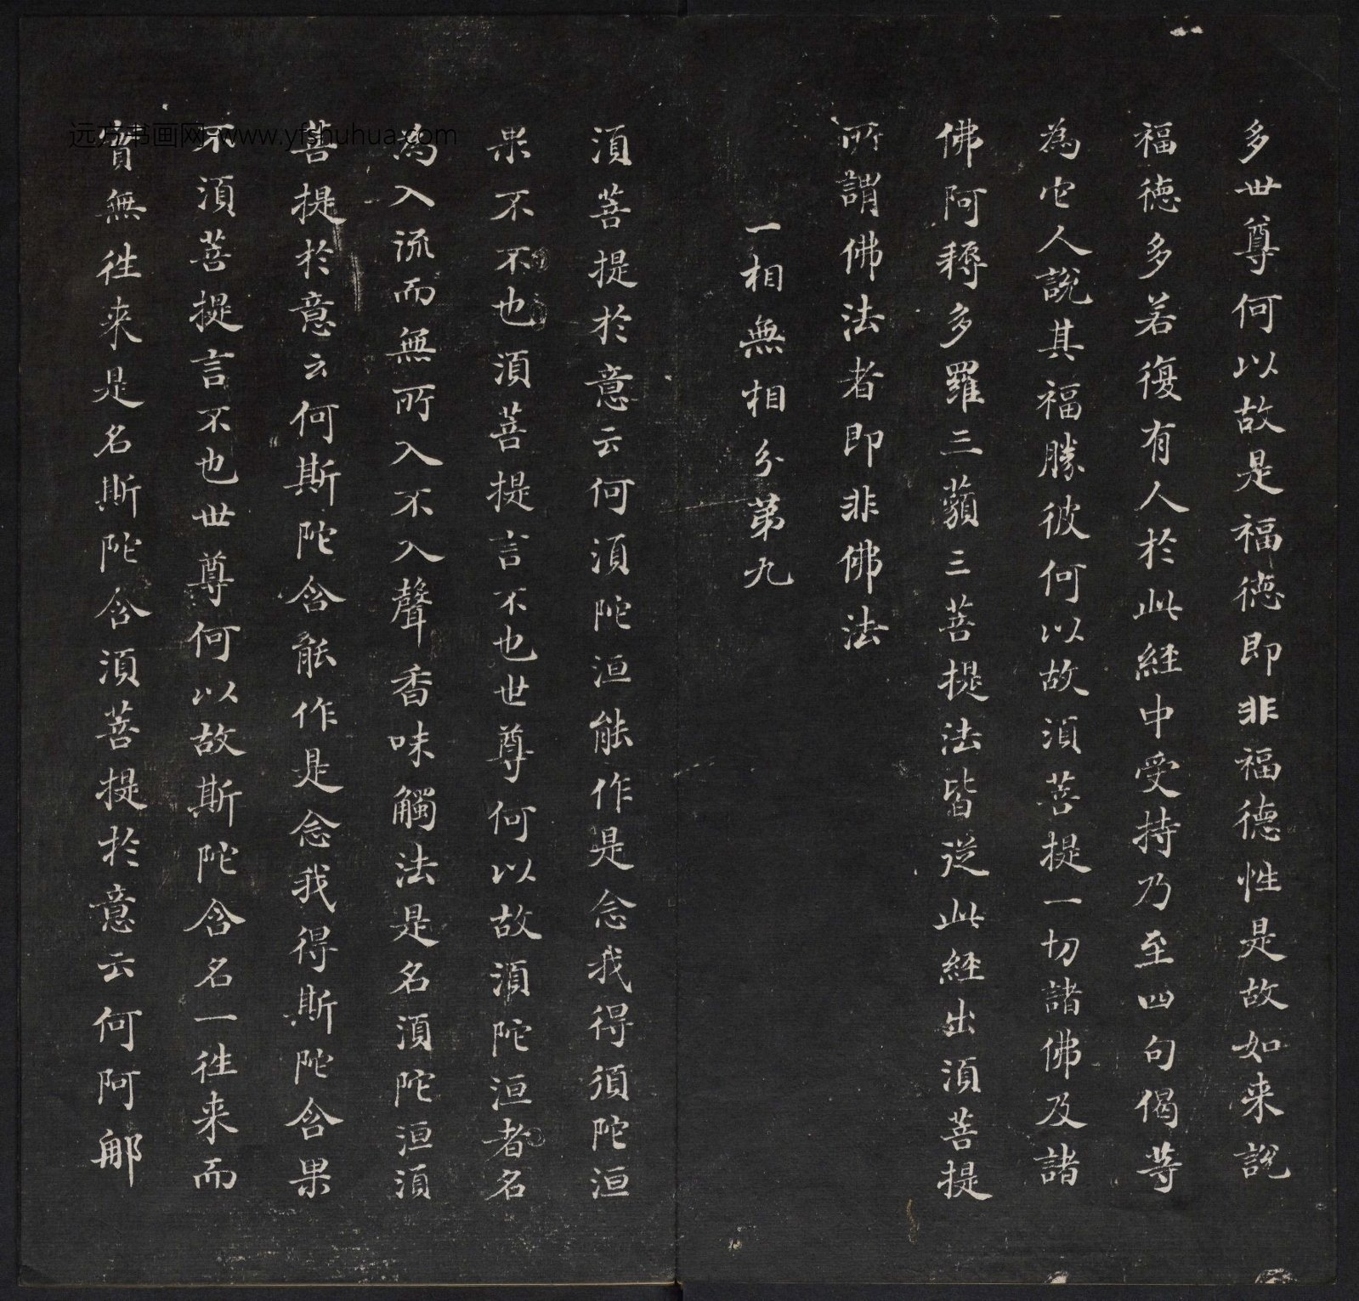 多世尊何以故是福德即非福德性是故如来說
福德多若復有人於此經中受持乃至四句偈等
為它人說其福勝彼何以故須菩提一切諸佛及諸
佛阿耨多羅三藐三菩提法皆從此經出須菩提
所謂佛法者即非佛法
一相無相分第九
須菩提於意云何須陀洹能作是念我得須陀洹
果不不也須菩提言不也世尊何以故須陀洹者名
為入流而無所入不入聲香味觸法是名須陀洹須
菩提於意云何斯陀含能作是念我得斯陀含果
不須菩提言不也世尊何以故斯陀含名一往来而
實無往来是名斯陀含須菩提於意云何阿那
远方书画网-www.yfshuhua.com